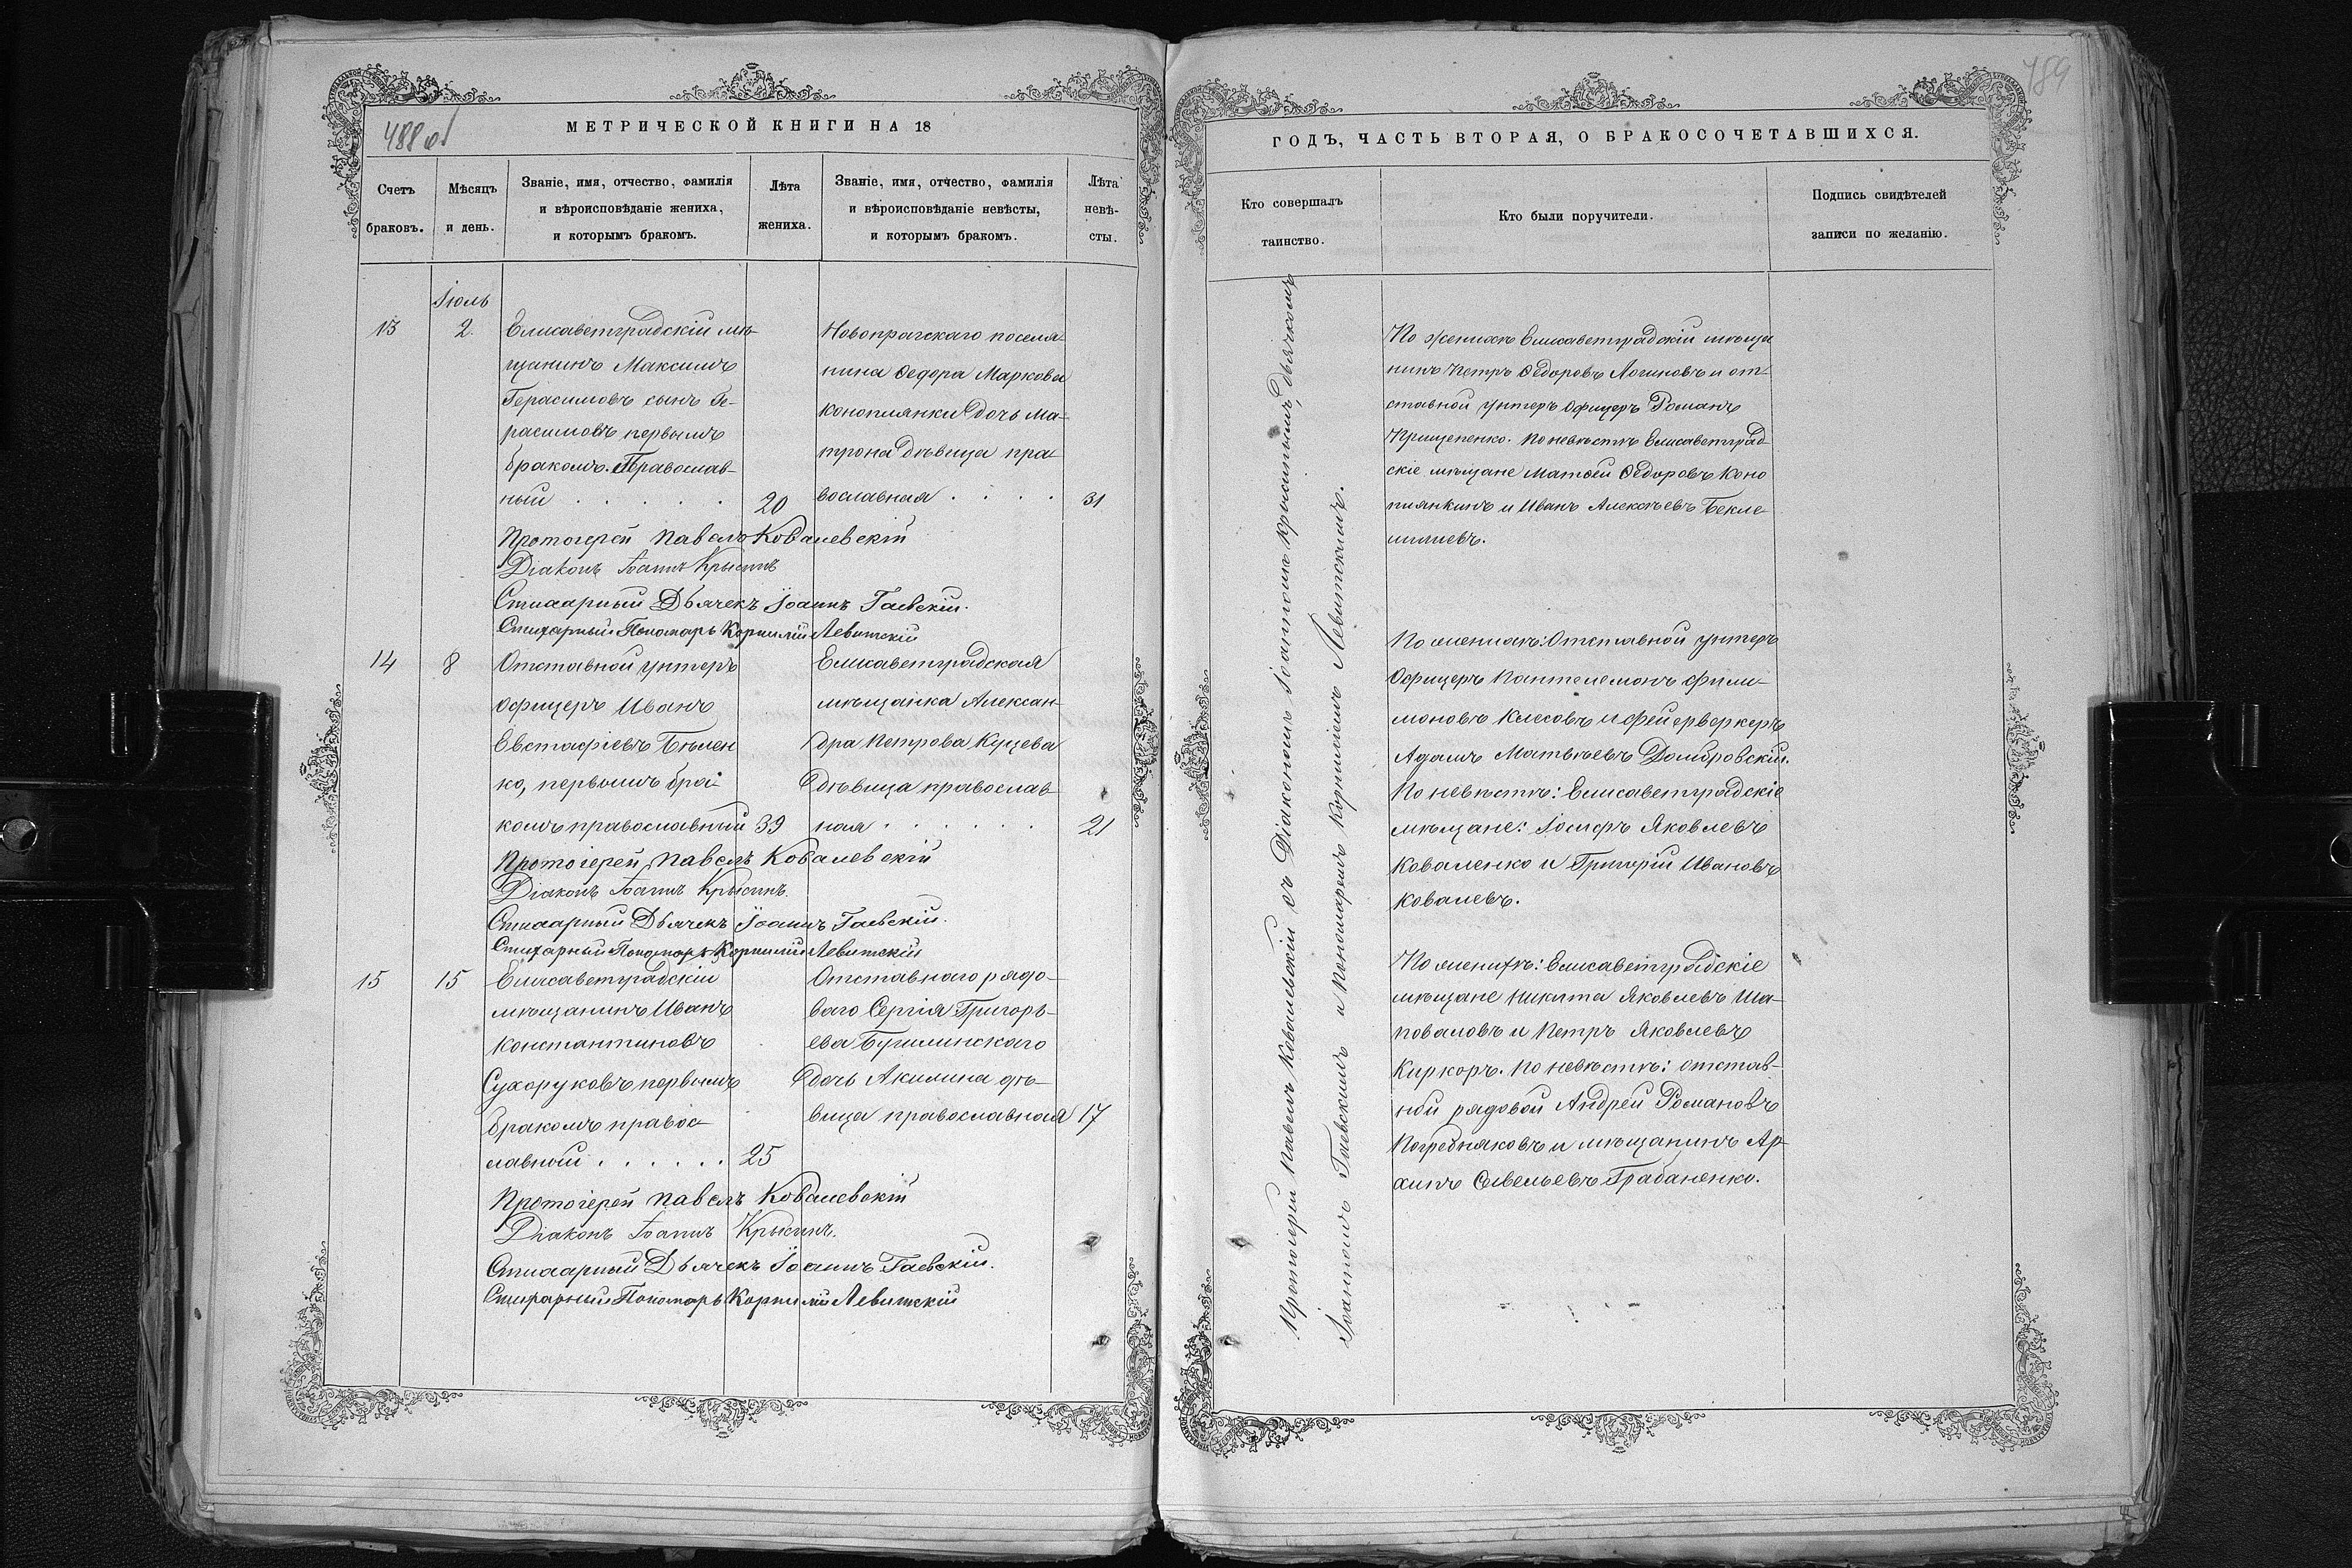 488 об
МЕТРИЧЕСКОЙ КНИГИ НА 18
Счетъ браковъ.
Мѣсяцъ и день.
Званіе, имя, отчество, фамилія
и вѣроисповѣданіе жениха,
и которымъ бракомъ.
Лѣта жениха.
Званіе, имя, отчество, фамилія
и вѣроисповѣданіе невѣсты,
и которымъ бракомъ.
Лѣта невѣ-
сты.
Іюль
13
2.
Елисаветградскій мѣ-
щанинъ Максимъ
Герасимовъ сынъ Ге-
расимовъ первымъ
бракомъ. Православ-
ный . . . . . 20
Новопрагскаго поселя-
нина Федора Маркова
Коноплянки дочь Ма-
трона дѣвица пра-
вославная . . . . 31
Протоіерей Павелъ Ковалевскій
Діаконъ Іоаннъ Крыситъ
Стихарный Дьячекъ Іоаннъ Гаевскій.
Стихарный Пономарь Корнилій Левитскій
14
8
Отставной унтеръ
офицеръ Иванъ
Евстафіевъ Бѣлен
ко, первымъ бра-
комъ православный 39
Елисаветградская
мѣщанка Алексан-
дра Петрова Куцева
дѣвица православ-
ная . . . . . 21
Протоіерей Павелъ Ковалевскій
Діаконъ Іоаннъ Крыситъ.
Стихарный Дьячекъ Іоаннъ Гаевскій.
Стихарный Пономарь Корнилій Левитскій
15
15
Елисаветградскій
мѣщанинъ Иванъ
Константиновъ
Сухоруковъ первымъ
бракомъ правос-
лавный . . . . . . 25
Отставнаго рядо-
ваго Сергія Григорь-
ева Бурлинскаго
дочь Акилина дѣ-
вица православная 17
Протоіерей Павелъ Ковалевскій
Діаконъ Іоаннъ Крыситъ.
Стихарный Дьячекъ Іоаннъ Гаевскій.
Стихарный Пономарь Корнилій Левитскій
489
ГОДЪ, ЧАСТЬ ВТОРАЯ, О БРАКОСОЧЕТАВШИХСЯ.
Кто совершалъ
таинство.
Кто были поручители.
Подпись свидѣтелей
записи по желанію.
Протоіерей Павелъ Ковалевскій съ Діакономъ Іоанномъ Крыситымъ, дьячкомъ
Іоанномъ Гаевскимъ и пономаремъ Корниліемъ Левитскимъ.
По женихѣ Елисаветградскій мѣща
нинъ Петръ Федоровъ Логиновъ и от-
ставной унтеръ офицеръ Романъ
Прищепенко. По невѣстѣ Елисаветград-
скіе мѣщане Матвей Федоровъ Коно
плянкинъ и Иванъ Алексѣевъ Бекле-
мишевъ.
По женихѣ: Отставной унтеръ
Офицеръ Пантелемонъ Фили-
моновъ Клесовъ и фейерверкеръ
Адамъ Матвѣевъ Домбровскій.
По невѣстѣ: Елисаветградскіе
мѣщане: Іосифъ Яковлевъ
Коваленко и Григорій Ивановъ
Ковалевъ.
По женихѣ: Елисаветградскіе
мѣщане Никита Яковлевъ Ша-
поваловъ и Петръ Яковлевъ
Киркоръ. По невѣстѣ: отстав-
ной рядовой Андрей Романовъ
Погребняковъ и мѣщанинъ Ар-
хипъ Савельевъ Грабаненко.